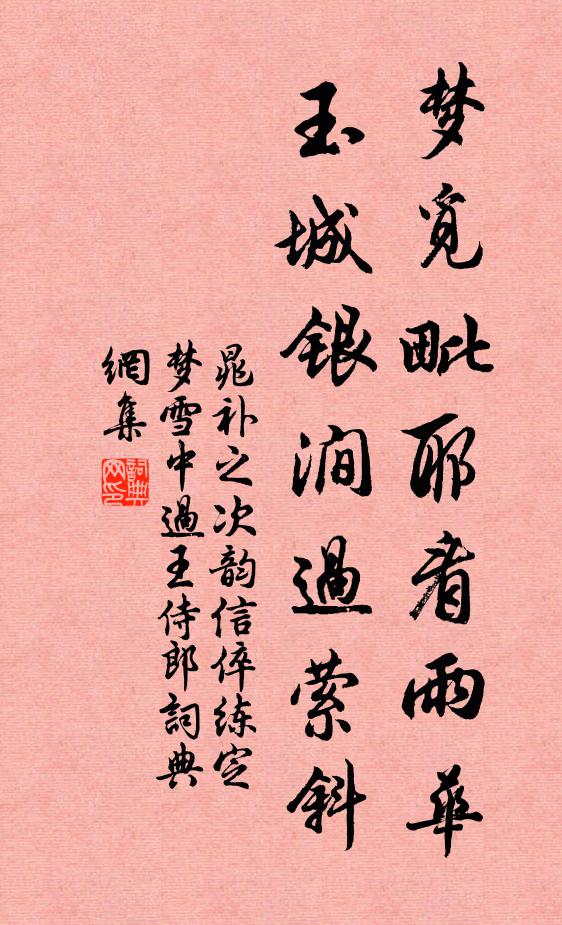 梦觅毗耶看雨华
玉城银涧过萦斜
晁补之次韵信倅练定
梦雪中過王侍郎詞典
網集
詞典網印